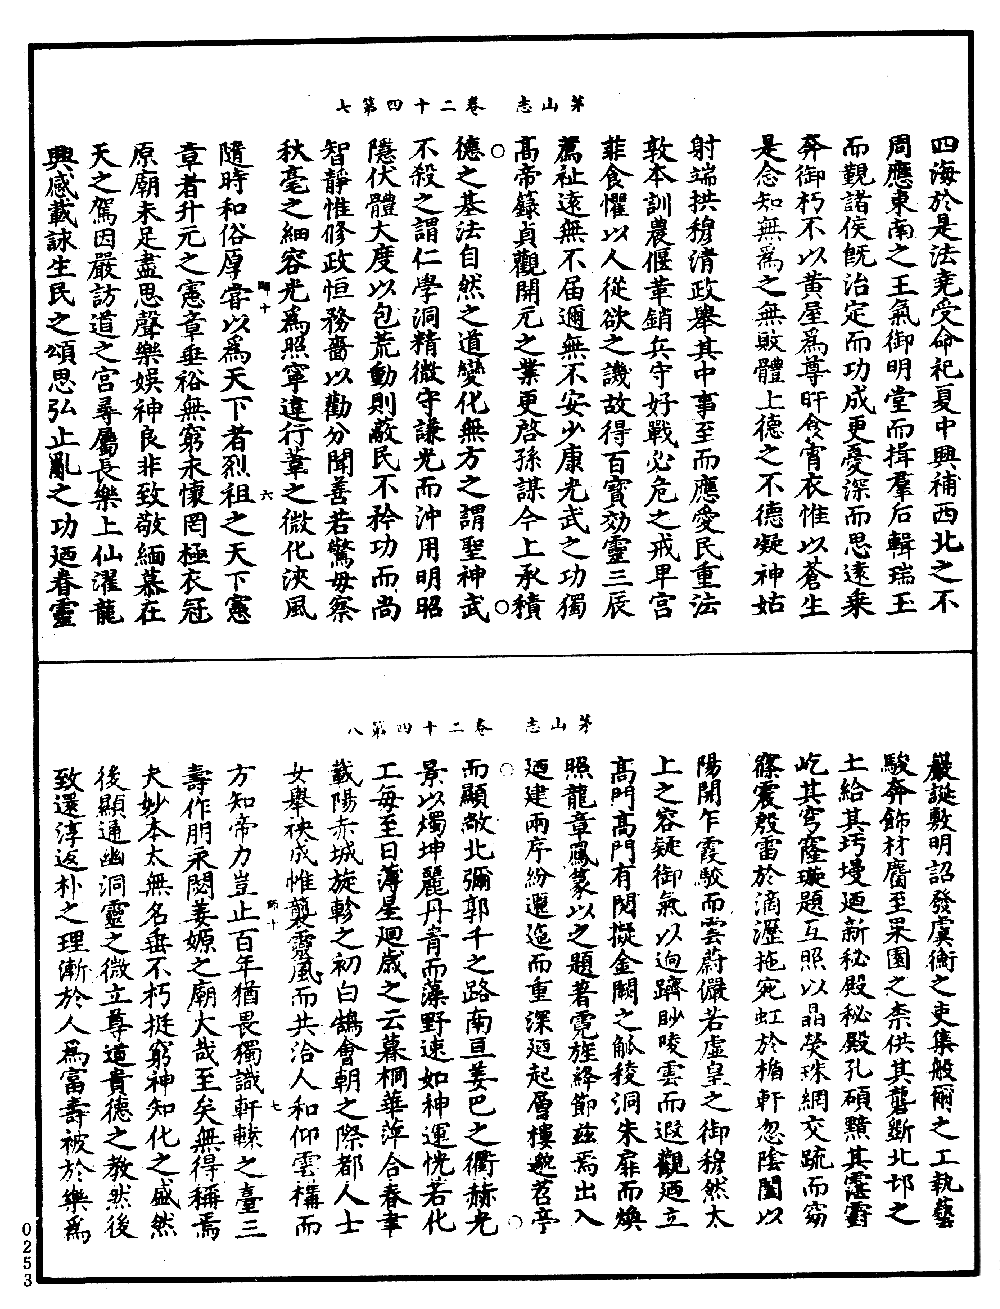 茅山志　卷二十四第七
四海於是法堯受命祀夏中興補西北之不
周應東南之王氣御明堂而揖羣后輯瑞玉
而觀諸侯旣治定而功成更憂深而思遠乗
奔御朽不以黃屋爲尊旰食宵衣惟以蒼生
是念知無爲之無敗體上德之不德凝神姑
射端拱穆清政舉其中事至而應愛民重法
敦本訓農偃革銷兵守好戰必危之戒卑宮
菲食懼以人從欲之譏故得百寳効靈三辰
薦祉遠無不届邇無不安少康光武之功獨
高帝籙貞觀開元之業更啓孫謀今上承積
德之基法自然之道變化無方之謂聖神武
不殺之謂仁學洞精微守謙光而沖用明昭
隱伏體大度以包荒動則敵民不矜功而尚
智靜惟修政恒務嗇以勸分聞善若驚毋察
秋毫之細容光爲照寧違行葦之微化浹風
隨時和俗厚甞以爲天下者烈祖之天下憲
章者升元之憲章垂裕無窮永懷罔極衣冠
原廟未足盡思聲樂娱神良非致敬緬慕在
天之駕因嚴訪道之宫尋屬長樂上仙濯龍
興感載詠生民之頌思弘止亂之功廼眷靈
師十
六
茅山志　卷二十四第八
巖誕敷明詔發虞衡之吏集般爾之工執藝
駿奔飾材麕至果園之柰供其礱斲北邙之
土給其圬墁廼新秘殿秘殿孔碩黯其霮䨴
屹其穹窿璇題互照以晶熒珠網交疏而窈
窱震殷雷於滴瀝拖宛虹於楯軒忽陰闔以
陽開乍霞駮而雲蔚儼若虚皇之御穆然太
上之容疑御氣以逈躋眇陵雲而遐觀廼立
高門高門有閌擬金闕之觚稜洞朱扉而煥
照龍章鳳篆以之題著霓旌絳節兹焉出入
廼建兩序紛邐迤而重深廼起層樓邈苕亭
而顯敞北彌郭千之路南亘姜巴之衢赫光
景以燭坤麗丹青而藻野速如神運恍若化
工每至日薄星廻歲之云暮桐華萍合春聿
載陽赤城旋軫之初白鵠會朝之際都人士
女舉袂成帷襲靈風而共洽人和仰雲構而
方知帝力豈止百年猶畏獨識軒轅之臺三
壽作朋永閟姜嫄之廟大哉至矣無得稱焉
夫妙本太無名垂不朽挺窮神知化之盛然
後顯通幽洞靈之微立尊道貴德之教然後
致還淳返朴之理漸於人爲富壽被於樂爲
師十
七
0253